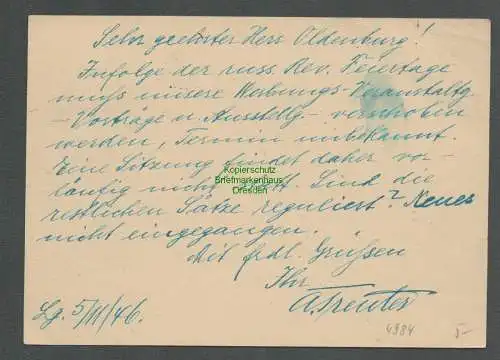 Sehr geehrter Herr Oldenburg!
Infolge der russ. Rev. Feiertage
muss unsere Werbungs-Veranstaltg
-Vorträge u. Ausstellg.- verschoben
werden, Termin unbekannt.
Eine Sitzung findet daher vor-
läufig nicht statt. Sind die
restlichen Sätze reguliert? Neues
nicht eingegangen.
Mit frdl. Grüssen
Ihr
A. Treuter
Lg. 5/11/46.
4984 5-
Kopierschutz
Briefmarkenhaus
Dresden